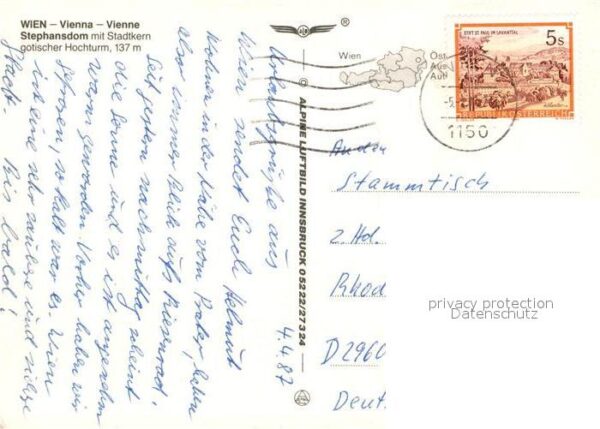 WIEN – Vienna – Vienne
Stephansdom mit Stadtkern
gotischer Hochturm, 137 m
®
4.4.87
Urlaubsgrüße aus
Wien sendet Euch Helmut
in der Nähe vom Prater,
also immer Blick aufs Riesenrad!
Seit gestern nachmittag scheint
die Sonne und es ist angenehm
warm geworden. Vorher haben wir
gefroren, so kalt war es. Wien
ist eine sehr saubere und ruhige
Stadt. Bis bald!
© ALPINE LUFTBILD INNSBRUCK 05222/27324
Wien
Öst
Aus
Auf
STIFT ST. PAUL IM LAVANTTAL
5s
REPUBLIK ÖSTERREICH
1150
An den
Stammtisch
z. Hd.
Rhod
D 2960
Deut
privacy protection
Datenschutz